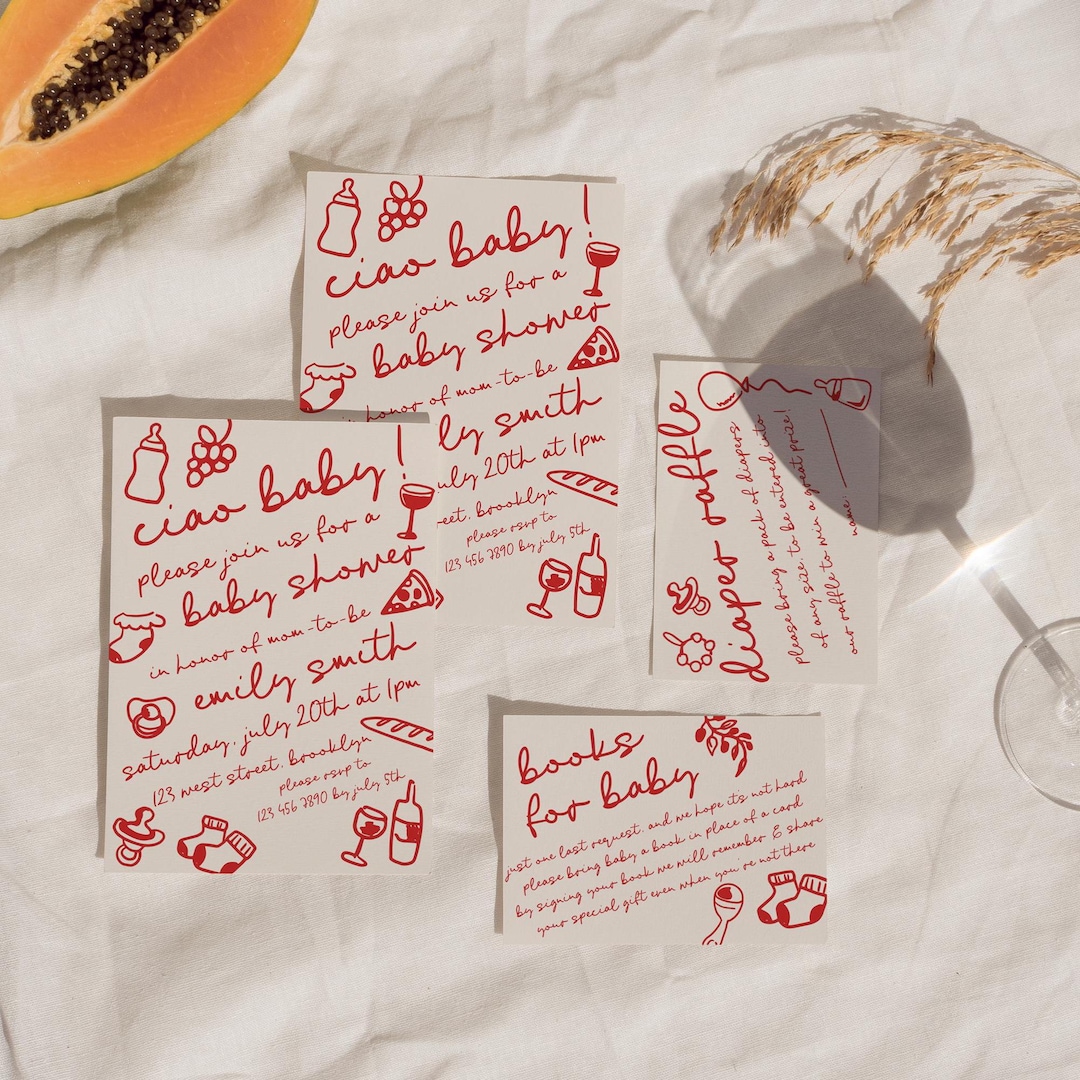 ciao baby!
please join us for a
baby shower
in honor of mom-to-be
ly smith
uly 20th at 1pm
eet, brooklyn
please rsvp to
123 456 7890 by july 5th
ciao baby!
please join us for a
baby shower
in honor of mom-to-be
emily smith
saturday, july 20th at 1pm
123 west street, brooklyn
please rsvp to
123 456 7890 by july 5th
diaper raffle
please bring a pack of diapers
of any size, to be entered into
our raffle to win a great prize!
name:
books
for baby
just one last request, and we hope it's not hard
please bring baby a book in place of a card
by signing your book we will remember & share
your special gift even when you're not there